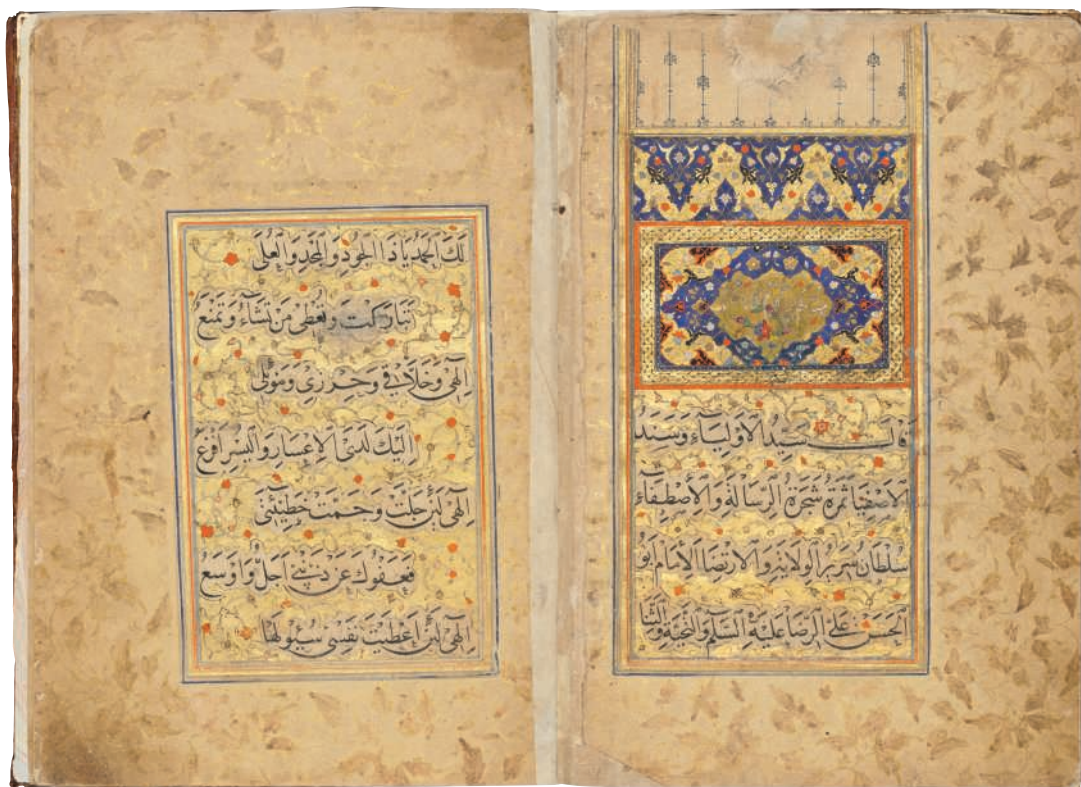 قال سَيِّدُ الاَوْلِيَاءِ وَسَنَدُ
الاَصْفِيَا ثَمَرَةُ شَجَرَةِ الرِّسَالَةِ وَالاَصْطِفَاءِ
سُلْطَانُ سَرِيرِ الوِلَايَةِ وَالاِرْتِضَا الاِمَامُ اَبُو
الحَسَن عَلِيّ الرِّضَا عَلَيْهِ السَّلَم وَالتَّحِيَّة وَالثَّنَا
لَكَ الحَمْدُ يَا ذَا الجُودِ وَالمَجْدِ وَالعُلَى
تَبَارَكْتَ تُعْطِى مَنْ تَشَاءُ وَتَمْنَعُ
اِلَهِى وَخَلَّاقِى وَحِرْزِى وَمَوْئِلِى
اِلَيْكَ لَدَى الاِعْسَارِ وَاليُسْرِ اَفْزَعُ
اِلَهِى لَئِنْ جَلَّتْ وَجَمَّتْ خَطِيئَتِى
فَعَفْوُكَ عَنْ ذَنْبِى اَجَلُّ وَاَوْسَعُ
اِلَهِى لَئِنْ اَعْطَيْتُ نَفْسِى سُؤْلَهَا